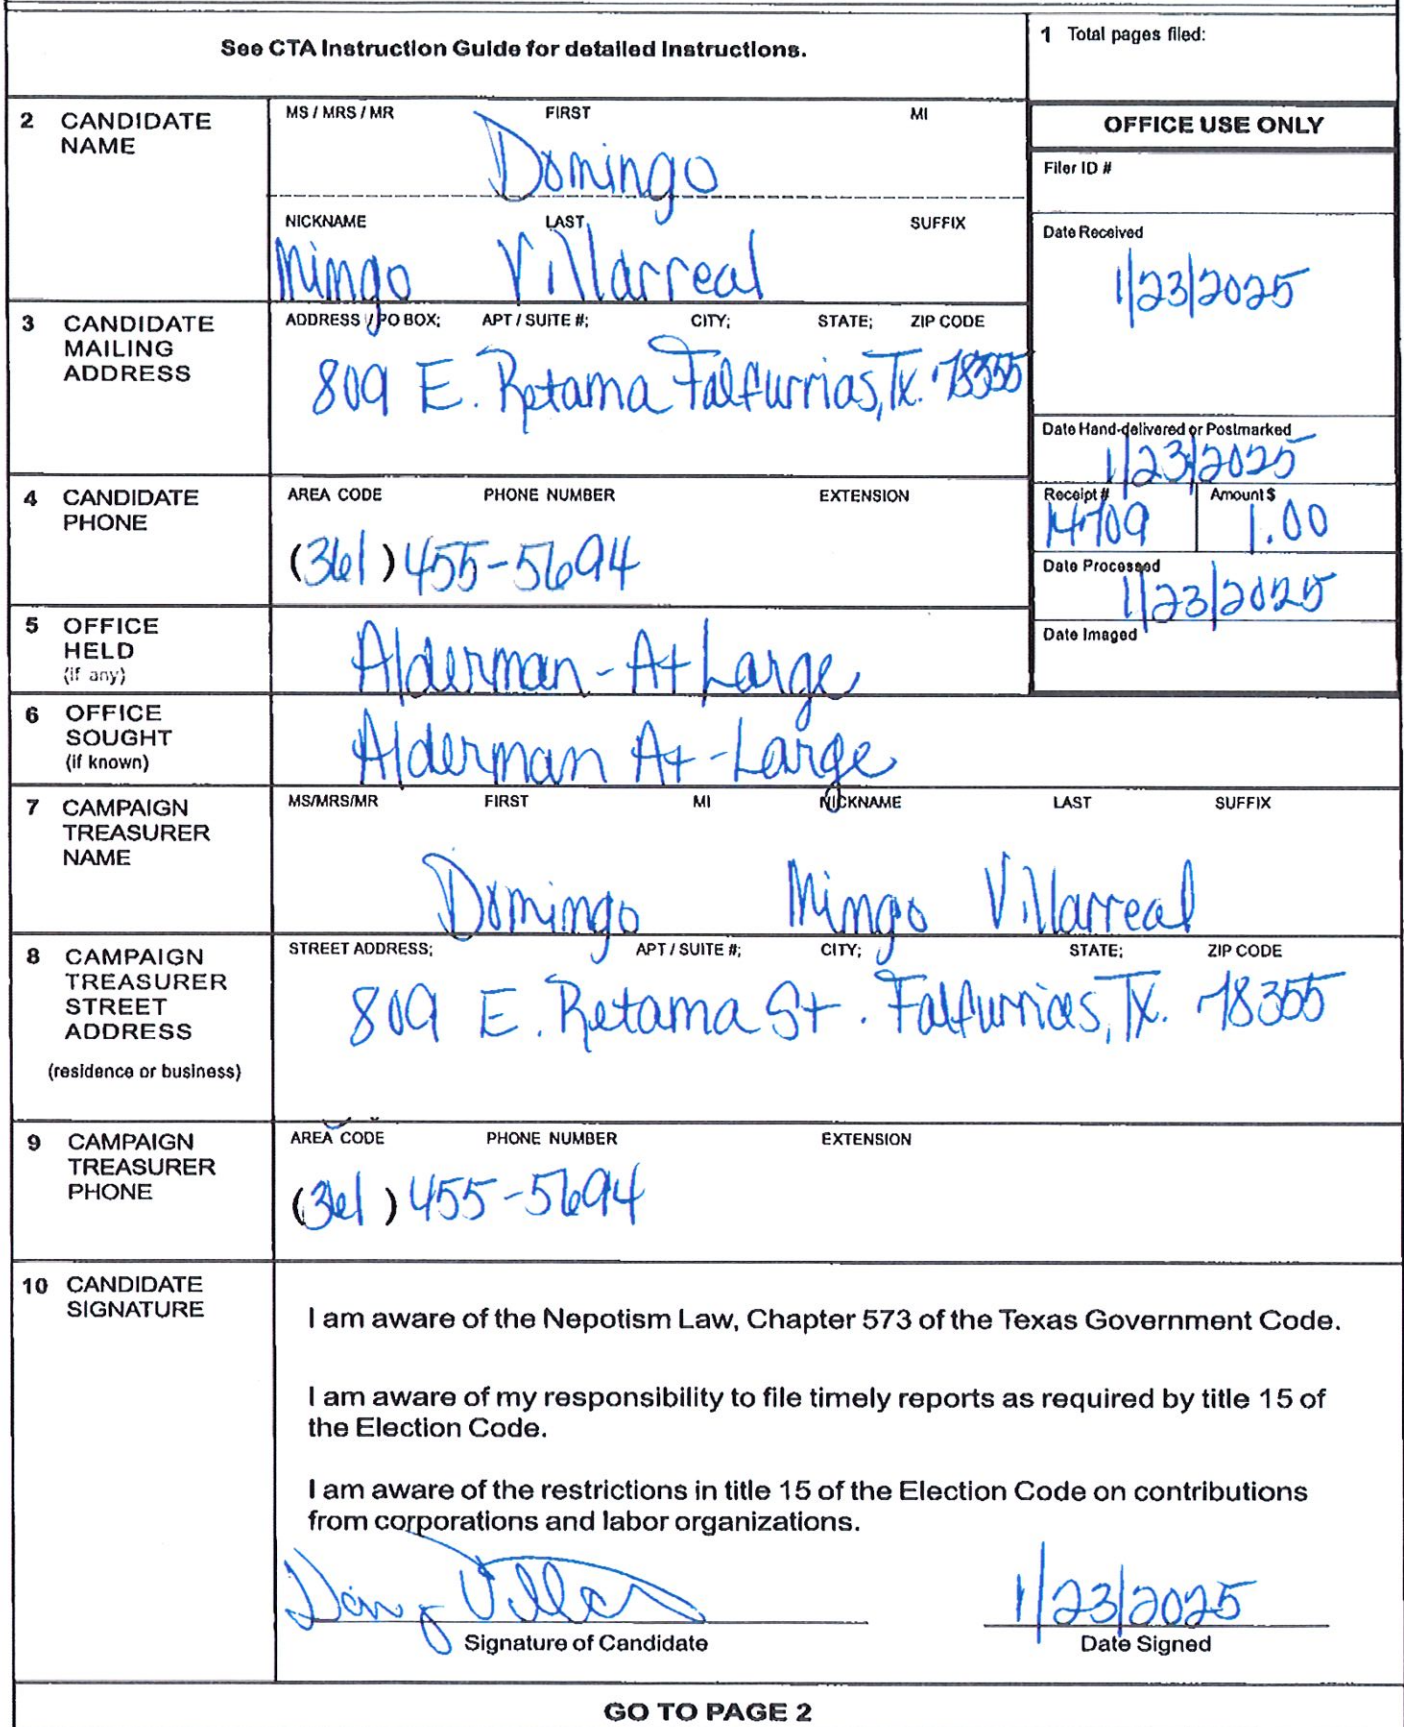 See CTA Instruction Guide for detailed instructions.
1 Total pages filed:
2 CANDIDATE NAME
MS / MRS / MR FIRST MI
Domingo
NICKNAME LAST SUFFIX
Mingo Villarreal
OFFICE USE ONLY
Filer ID #
Date Received
1/23/2025
3 CANDIDATE MAILING ADDRESS
ADDRESS / PO BOX; APT / SUITE #; CITY; STATE; ZIP CODE
809 E. Retama Falfurrias, Tx. 78355
Date Hand-delivered or Postmarked
1/23/2025
4 CANDIDATE PHONE
AREA CODE PHONE NUMBER EXTENSION
(361) 455-5694
Receipt # Amount $
14709 1.00
Date Processed
1/23/2025
Date Imaged
5 OFFICE HELD (if any)
Alderman - At Large
6 OFFICE SOUGHT (if known)
Alderman At-Large
7 CAMPAIGN TREASURER NAME
MS/MRS/MR FIRST MI NICKNAME LAST SUFFIX
Domingo Mingo Villarreal
8 CAMPAIGN TREASURER STREET ADDRESS
(residence or business)
STREET ADDRESS; APT / SUITE #; CITY; STATE; ZIP CODE
809 E. Retama St. Falfurrias, Tx. 78355
9 CAMPAIGN TREASURER PHONE
AREA CODE PHONE NUMBER EXTENSION
(361) 455-5694
10 CANDIDATE SIGNATURE
I am aware of the Nepotism Law, Chapter 573 of the Texas Government Code.
I am aware of my responsibility to file timely reports as required by title 15 of
the Election Code.
I am aware of the restrictions in title 15 of the Election Code on contributions
from corporations and labor organizations.
1/23/2025
Signature of Candidate Date Signed
GO TO PAGE 2